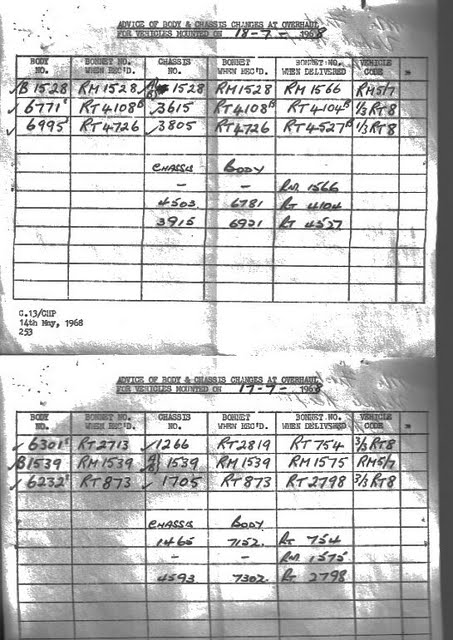 ADVICE OF BODY & CHASSIS CHANGES AT OVERHAUL
FOR VEHICLES MOUNTED ON 18-7- 1968
BODY NO. BONNET NO. WHEN REC'D. CHASSIS NO. BONNET WHEN REC'D. BONNET NO. WHEN DELIVERED VEHICLE CODE
✓B1528 RM1528 1528 RM1528 RM1566 RM5/7
✓6771 RT4108B ✓3615 RT4108B RT4104B 1/3 RT8
✓6995 RT4726 ✓3805 RT4726 RT4527B 1/3 RT8
CHASSIS BODY
- - RM 1566
4503 6781 RT 4104
3915 6921 RT 4527
C.13/CHP
14th May, 1968
253
ADVICE OF BODY & CHASSIS CHANGES AT OVERHAUL
FOR VEHICLES MOUNTED ON 17-7- 1968
BODY NO. BONNET NO. WHEN REC'D. CHASSIS NO. BONNET WHEN REC'D. BONNET NO. WHEN DELIVERED VEHICLE CODE
✓6301 RT2713 ✓1266 RT2819 RT754 3/3 RT8
✓B1539 RM1539 1539 RM1539 RM1575 RM5/7
✓6232 RT873 ✓1705 RT873 RT2798 3/3 RT8
CHASSIS BODY
1465 7152. RT 754
- - RM 1575
4593 7302. RT 2798